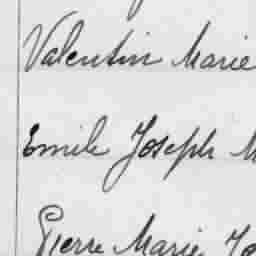 Valentin Marie
Emile Joseph M
Pierre Marie Jo